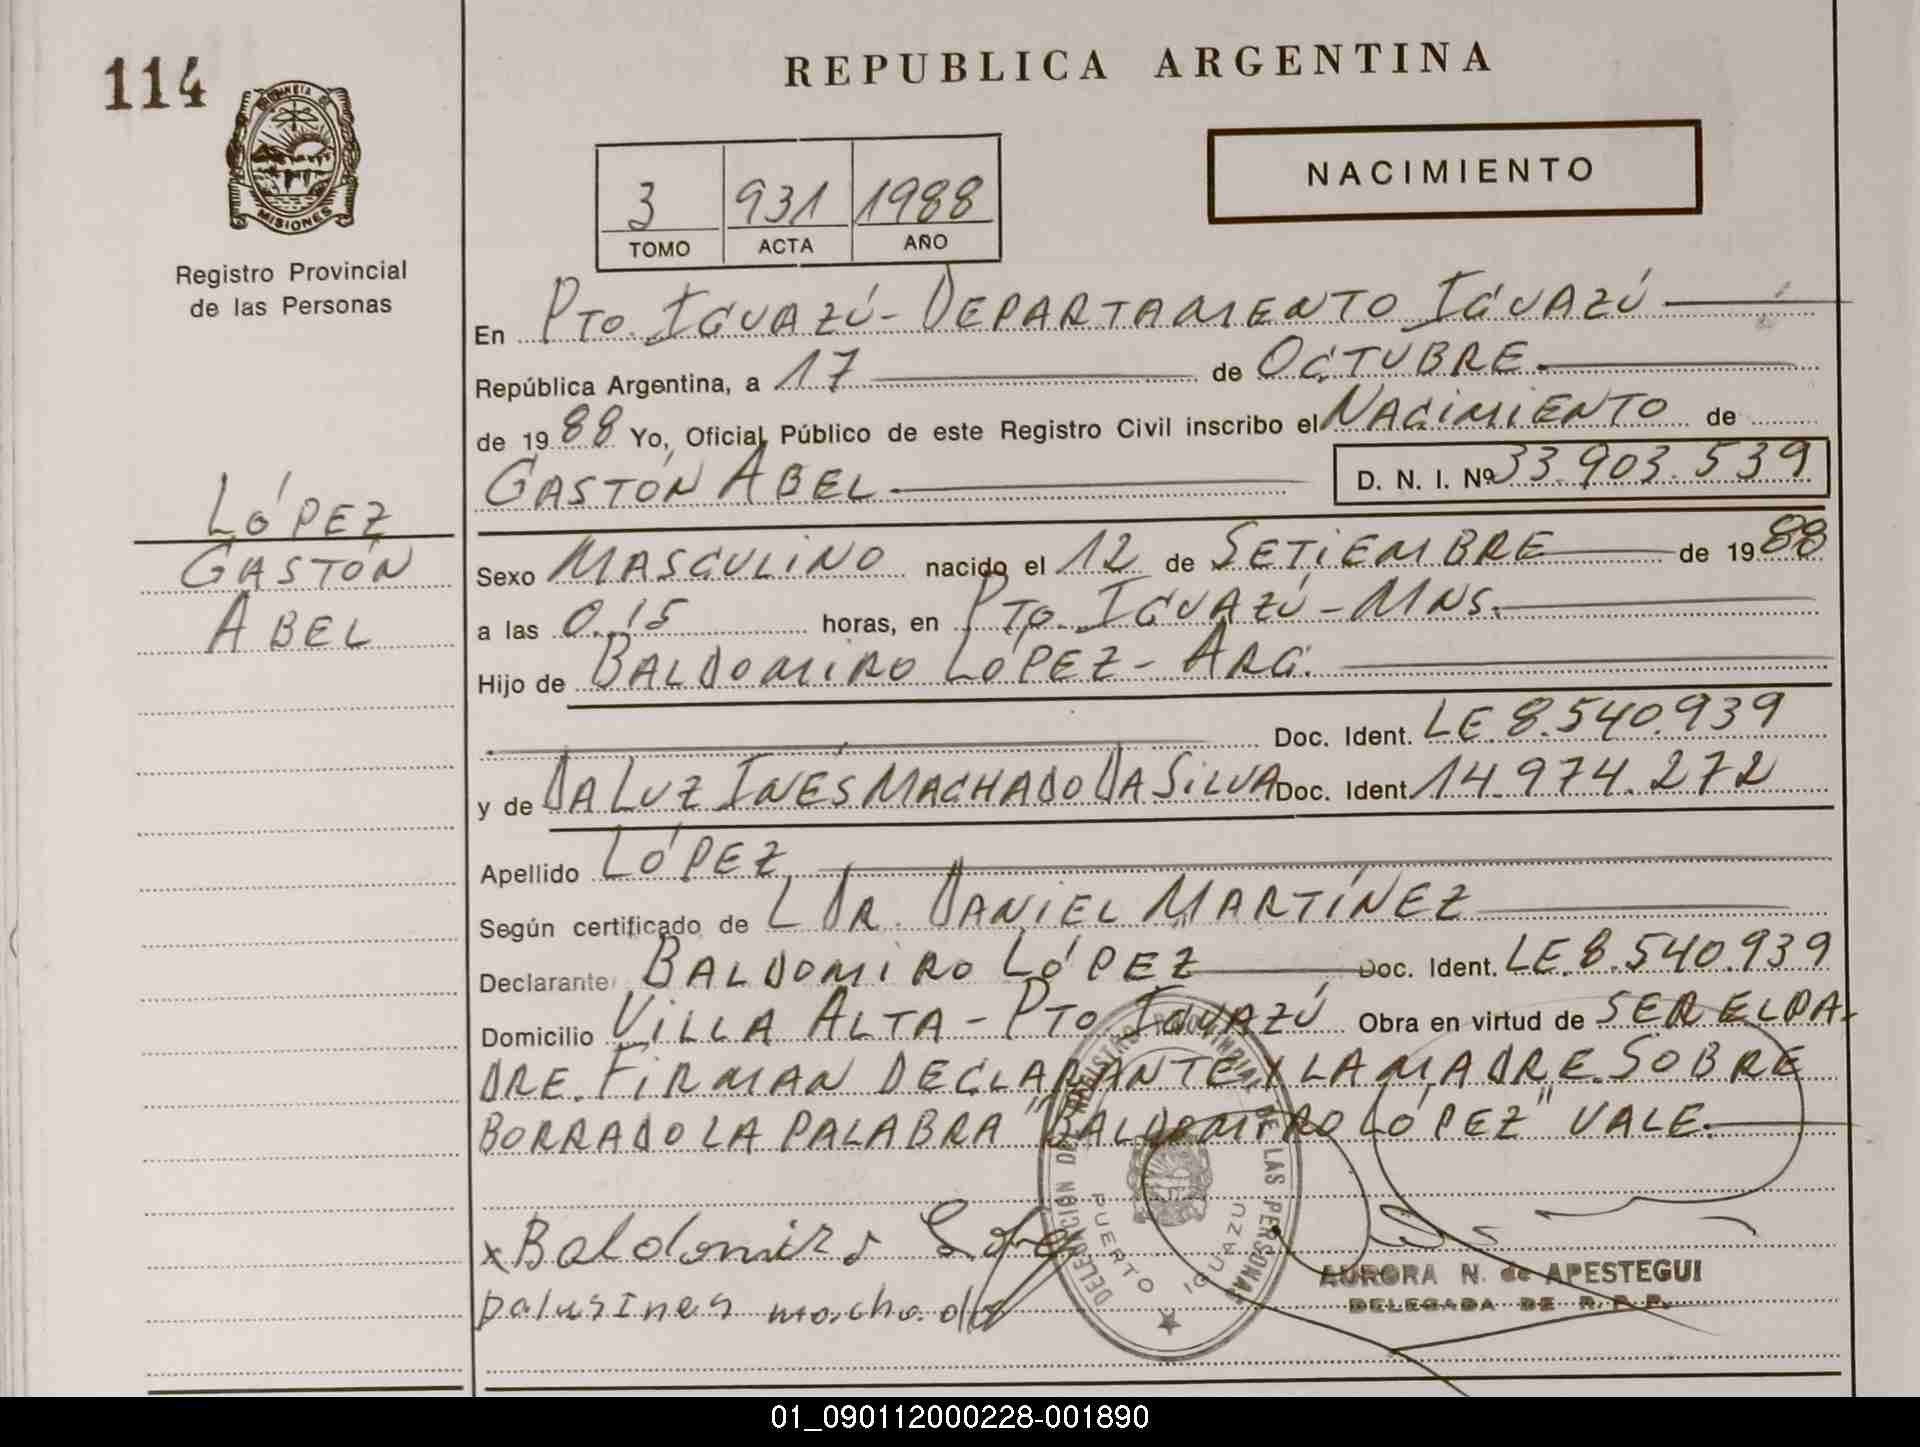 114
REPUBLICA ARGENTINA
PROVINCIA DE
MISIONES
Registro Provincial
de las Personas
3 931 1988
TOMO ACTA AÑO
NACIMIENTO
En PTO. IGUAZÚ - DEPARTAMENTO IGUAZÚ
República Argentina, a 17 de OCTUBRE
de 1988 Yo, Oficial Público de este Registro Civil inscribo el NACIMIENTO de
GASTÓN ABEL D. N. I. Nº 33.903.539
LÓPEZ
GASTÓN
ABEL
Sexo MASCULINO nacido el 12 de SETIEMBRE de 1988
a las 0.15 horas, en PTO. IGUAZÚ - MNS.
Hijo de BALDOMIRO LÓPEZ - ARG.
Doc. Ident. LE 8.540.939
y de DA LUZ INÉS MACHADO DA SILVA Doc. Ident. 14.974.272
Apellido LÓPEZ
Según certificado de L DR. DANIEL MARTÍNEZ
Declarante BALDOMIRO LÓPEZ Doc. Ident. LE.8.540.939
Domicilio VILLA ALTA - PTO IGUAZÚ Obra en virtud de SER EL PA-
DRE. FIRMAN DECLARANTE Y LA MADRE. SOBRE
BORRADO LA PALABRA "BALDOMIRO LÓPEZ" VALE.
DELEGACIÓN DEL REGISTRO PROVINCIAL DE LAS PERSONAS
PUERTO IGUAZU
x Baldomiro
machado
AURORA N. de APESTEGUI
DELEGADA DE R. P. P.
01_090112000228-001890